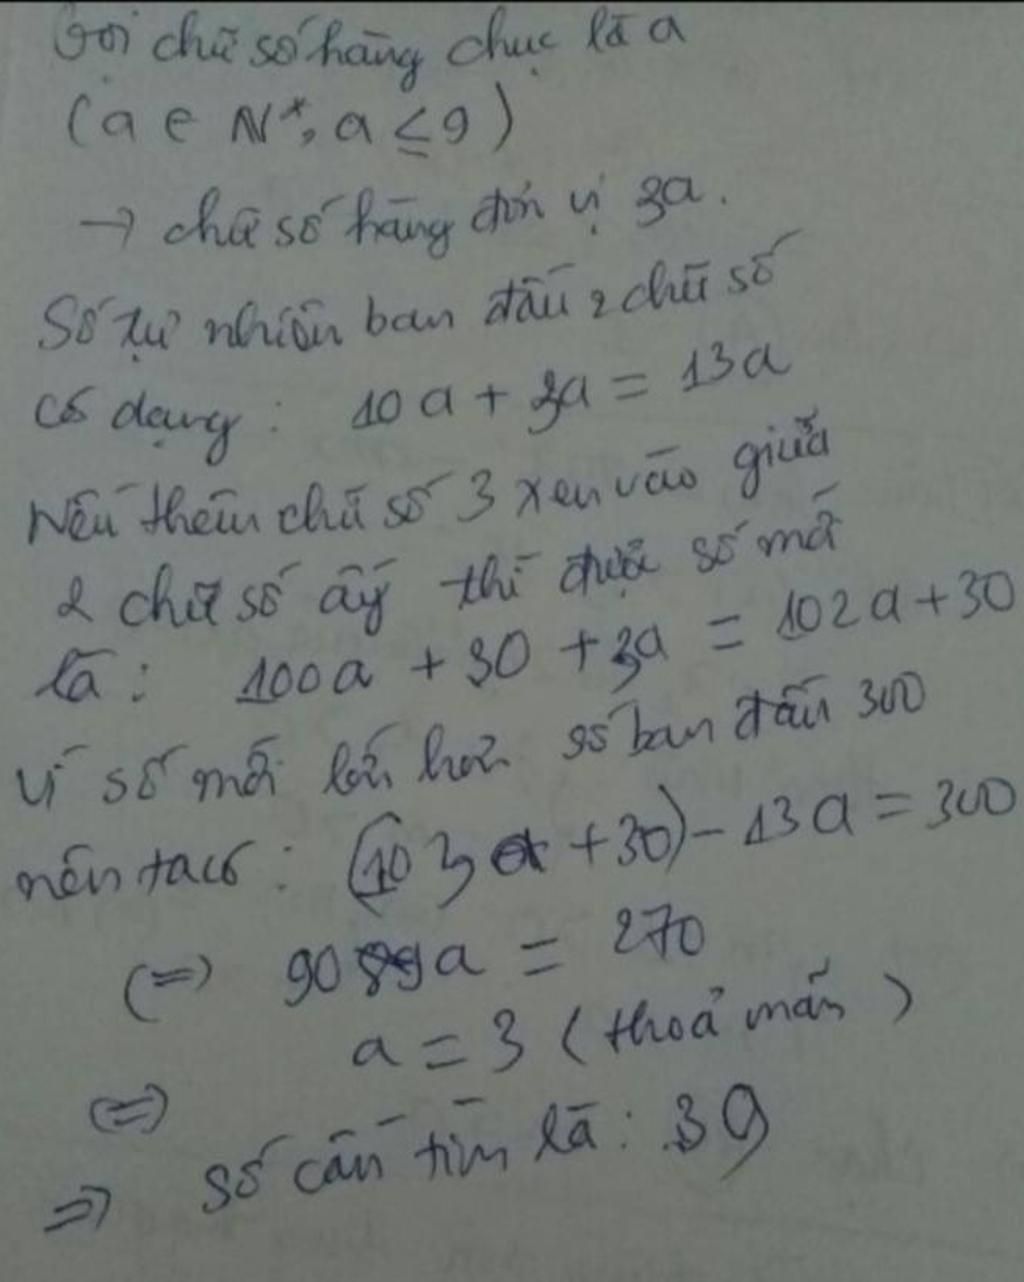 Gọi chữ số hàng chục là a
(a ∈ N*, a ≤ 9)
→ chữ số hàng đơn vị 3a.
Số tự nhiên ban đầu 2 chữ số
có dạng: 10a + 3a = 13a
Nếu thêm chữ số 3 xen vào giữa
2 chữ số ấy thì được số mới
là: 100a + 30 + 3a = 102a + 30
Vì số mới lớn hơn số ban đầu 300
nên ta có: (103a + 30) - 13a = 300
(=) 90 a = 270
a = 3 (thoả mãn)
(=)
=> số cần tìm là: 39